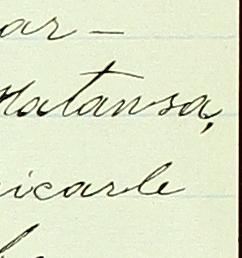 ar -
Matansa,
icarle